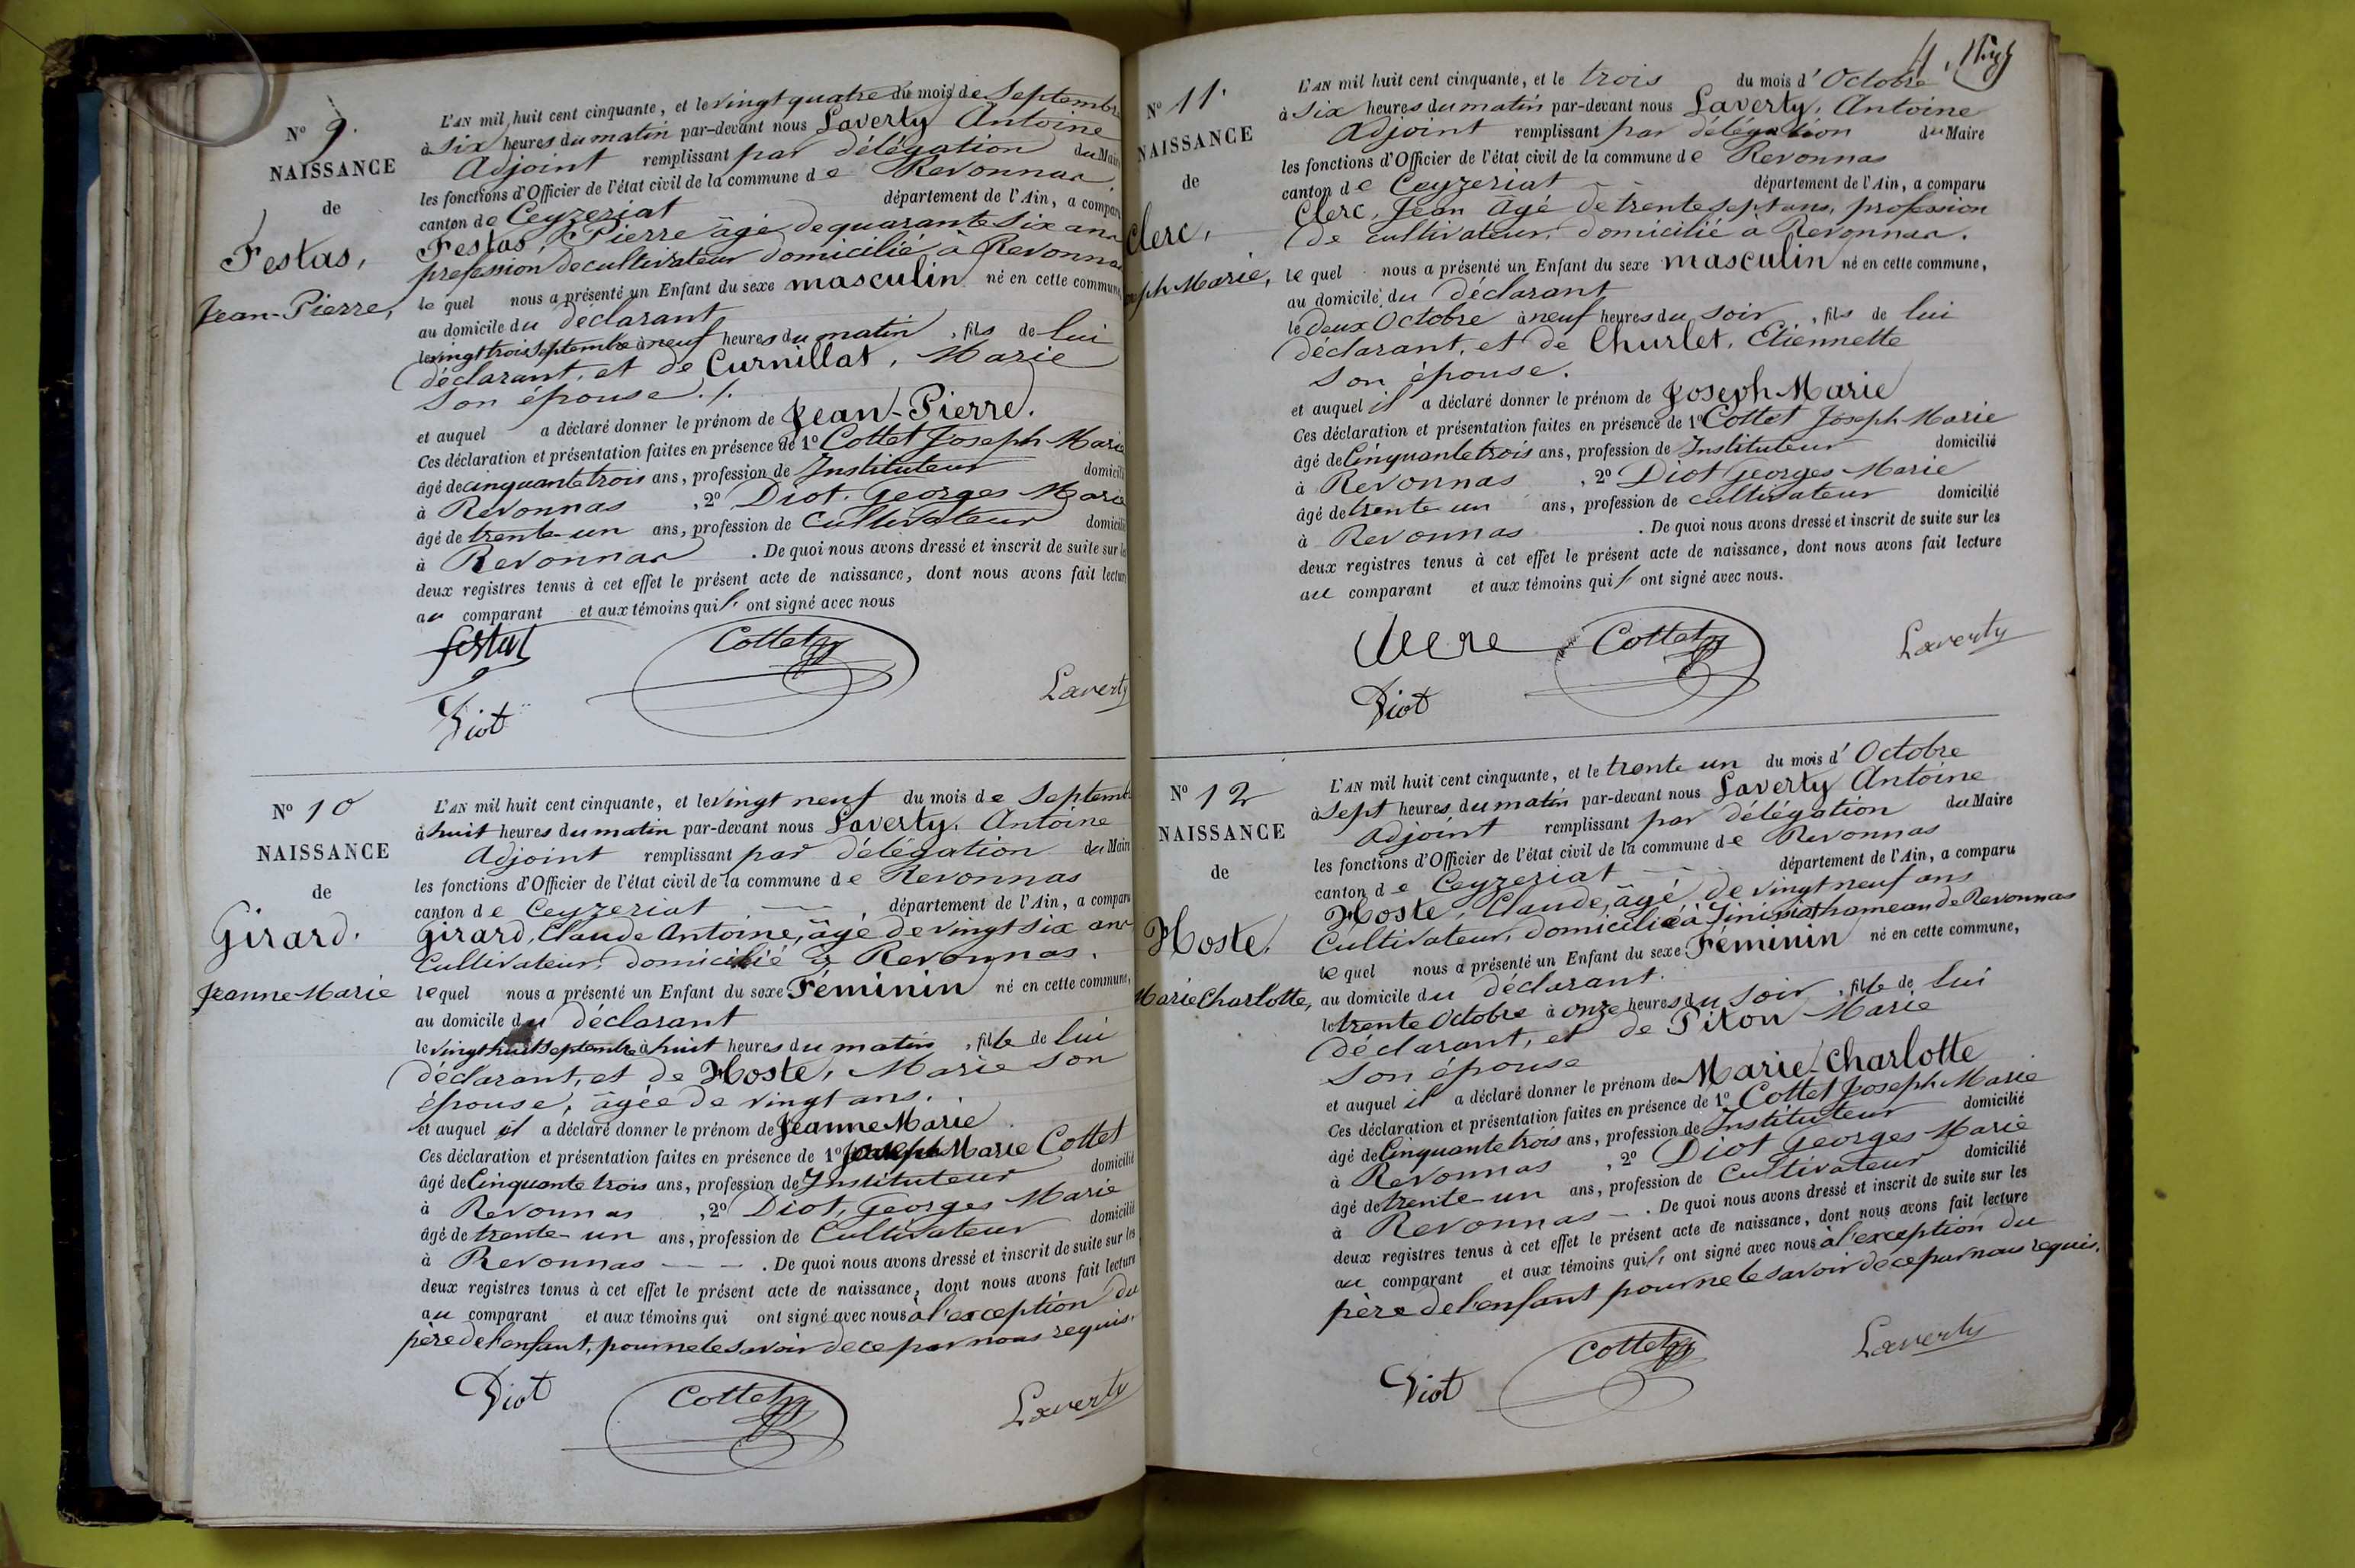 N° 9.
NAISSANCE
de
Festas,
Jean-Pierre,
L'AN mil huit cent cinquante, et le vingt quatre du mois de Septembre
à six heures du matin par-devant nous Laverty Antoine
Adjoint remplissant par délégation du Maire
les fonctions d'Officier de l'état civil de la commune de Revonnas
canton de Ceyzeriat département de l'Ain, a comparu
Festas, Pierre âgé de quarante six ans
profession de cultivateur domicilié à Revonnas
lequel nous a présenté un Enfant du sexe masculin né en cette commune,
au domicile du déclarant
le vingt trois Septembre à neuf heures du matin, fils de lui
déclarant, et de Curnillat, Marie
son épouse ./.
et auquel a déclaré donner le prénom de Jean-Pierre.
Ces déclaration et présentation faites en présence de 1° Cottet Joseph-Marie
âgé de cinquante trois ans, profession de Instituteur domicilié
à Revonnas, 2° Diot, Georges Marie
âgé de trente-un ans, profession de Cultivateur domicilié
à Revonnas. De quoi nous avons dressé et inscrit de suite sur les
deux registres tenus à cet effet le présent acte de naissance, dont nous avons fait lecture
au comparant et aux témoins qui ont signé avec nous
festas Cottet
Laverty
Diot
N° 10
NAISSANCE
de
Girard.
Jeanne Marie
L'AN mil huit cent cinquante, et le vingt neuf du mois de Septembre
à huit heures du matin par-devant nous Laverty, Antoine
Adjoint remplissant par délégation du Maire
les fonctions d'Officier de l'état civil de la commune de Revonnas
canton de Ceyzeriat département de l'Ain, a comparu
Girard, Claude Antoine, âgé de vingt six ans
Cultivateur, domicilié à Revonnas.
lequel nous a présenté un Enfant du sexe Féminin né en cette commune,
au domicile du déclarant
le vingt huit septembre à huit heures du matin, fille de lui
déclarant, et de Hoste, Marie son
épouse, âgée de vingt ans.
et auquel il a déclaré donner le prénom de Jeanne Marie
Ces déclaration et présentation faites en présence de 1° Joseph Marie Cottet
âgé de Cinquante trois ans, profession de Instituteur domicilié
à Revonnas, 2° Diot, Georges Marie
âgé de trente-un ans, profession de Cultivateur domicilié
à Revonnas - - . De quoi nous avons dressé et inscrit de suite sur les
deux registres tenus à cet effet le présent acte de naissance, dont nous avons fait lecture
au comparant et aux témoins qui ont signé avec nous à l'exception du
père de l'enfant, pour ne le savoir de ce par nous requis.
Diot Cottet Laverty
4
N° 11.
NAISSANCE
de
Clerc,
Joseph Marie,
L'AN mil huit cent cinquante, et le trois du mois d'Octobre
à six heures du matin par-devant nous Laverty, Antoine
Adjoint remplissant par délégation du Maire
les fonctions d'Officier de l'état civil de la commune de Revonnas
canton de Ceyzeriat département de l'Ain, a comparu
Clerc, Jean âgé de trente sept ans, profession
de cultivateur, domicilié à Revonnas.
lequel nous a présenté un Enfant du sexe masculin né en cette commune,
au domicile du déclarant
le deux Octobre à neuf heures du soir, fils de lui
déclarant, et de Churlet, Etiennette
son épouse.
et auquel il a déclaré donner le prénom de Joseph Marie
Ces déclaration et présentation faites en présence de 1° Cottet Joseph-Marie
âgé de Cinquante trois ans, profession de Instituteur domicilié
à Revonnas, 2° Diot Georges Marie
âgé de trente-un ans, profession de cultivateur domicilié
à Revonnas. De quoi nous avons dressé et inscrit de suite sur les
deux registres tenus à cet effet le présent acte de naissance, dont nous avons fait lecture
au comparant et aux témoins qui ont signé avec nous.
Cottet Laverty
Diot
N° 12
NAISSANCE
de
Hoste.
Marie Charlotte,
L'AN mil huit cent cinquante, et le trente un du mois d'Octobre
à sept heures du matin par-devant nous Laverty Antoine
Adjoint remplissant par délégation du Maire
les fonctions d'Officier de l'état civil de la commune de Revonnas
canton de Ceyzeriat département de l'Ain, a comparu
Hoste, Claude, âgé de vingt neuf ans
Cultivateur, domicilié à hameau de Revonnas
lequel nous a présenté un Enfant du sexe Féminin né en cette commune,
au domicile du déclarant.
le trente Octobre à onze heures du soir, fille de lui
déclarant, et de Piton Marie
son épouse
et auquel il a déclaré donner le prénom de Marie-Charlotte
Ces déclaration et présentation faites en présence de 1° Cottet Joseph-Marie
âgé de Cinquante trois ans, profession de Instituteur domicilié
à Revonnas, 2° Diot Georges Marie
âgé de trente-un ans, profession de Cultivateur domicilié
à Revonnas - . De quoi nous avons dressé et inscrit de suite sur les
deux registres tenus à cet effet le présent acte de naissance, dont nous avons fait lecture
au comparant et aux témoins qui ont signé avec nous à l'exception du
père de l'enfant pour ne le savoir de ce par nous requis.
Cottet Laverty
Diot